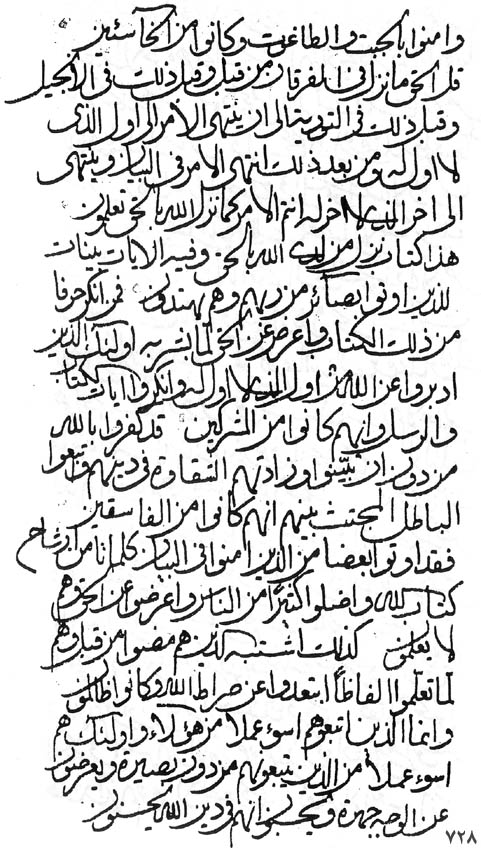 وامنوا بالجبت والطاغوت وكانوا من الخاسئين
قل الحق ما نزل فى الفرقان من قبل وقبل ذلك فى الانجيل
وقبل ذلك فى التورية الى ان ينتهى الأمر الى اول الذى
لا اول له ومن بعد ذلك انتهى الامر فى البيان وينتهى
الى اخر الذى لا اخر له انتم الامر كما نزل الله بالحق تعلمون
هذا كتاب نزل من لدى الله بالحق وفيه الايات بينات
للذين اوتوا بصآئر من ربهم وهم يهتدون فمن انكر حرفا
من ذلك الكتاب واعرض عن الحق لما تسر به اولئك الذين
ادبروا عن الله من اول الذى لا اول له وانكروا ايات الكتاب
والرسل وانهم كانوا من المشركين قد كفروا بالله
من دون ان يتبينوا وزادتهم الشقاوة فى دينهم واتبعوا
الباطل المجتث بينهم انهم كانوا من الفاسقين
فقد اوتوا بعضا من الذين امنوا فى البيان كلمات من
كتاب الله واضلوا كثيرا من الناس واعرضوا عن الحق وهم
لا يعلمون كذلك اشتبه الذين هم مضوا من قبل وهم
لما تعلموا الفاظاً ابتعدوا عن صراط الله وكانوا ظالمون
وانما الذين اتبعوهم اسوء عملا من هؤلاء واولئك هم
اسوء عملا من الذين يتبعونهم من دون بصيرة ويعرضون
عن الوجه جهرة ويحسبون انهم فى دين الله يحسنون
٧٢٨